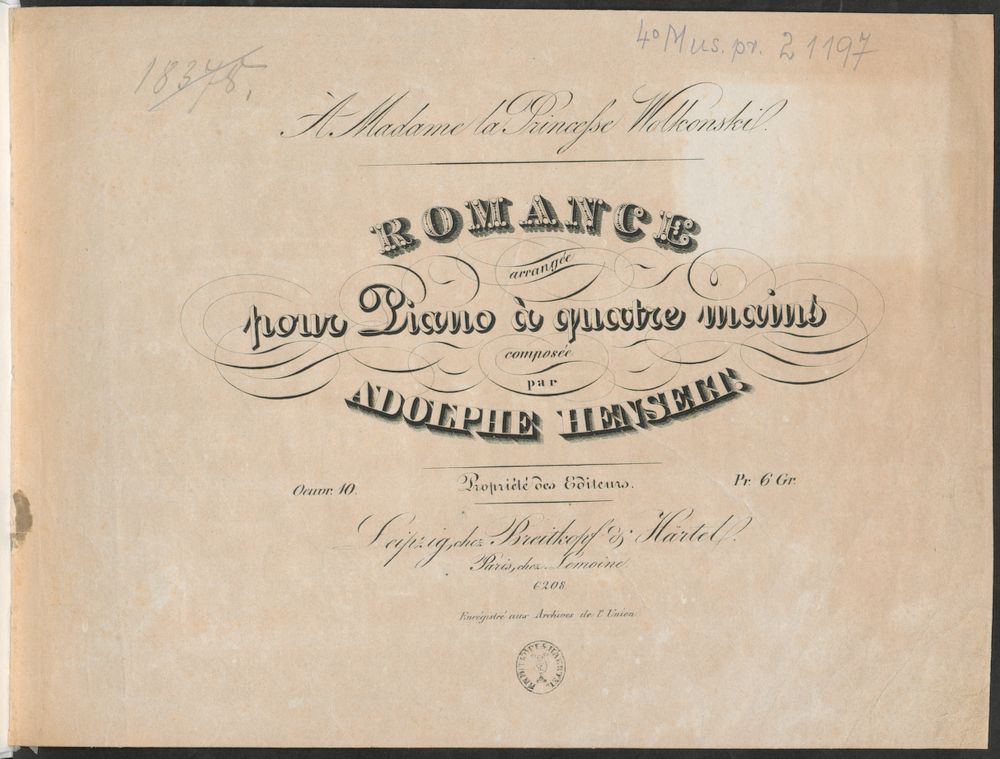 4° Mus. pr. 2 1197
18378.
À Madame la Princesse Wolkonski.
ROMANCE
arrangée
pour Piano à quatre mains
composée
par
ADOLPHE HENSELT.
Oeuvr. 10.
Propriété des Editeurs.
Pr. 6 Gr.
Leipzig, chez Breitkopf & Härtel.
Paris, chez Lemoine.
6208
Enrégistré aux Archives de l'Union.
BREITKOPF & HAERTEL